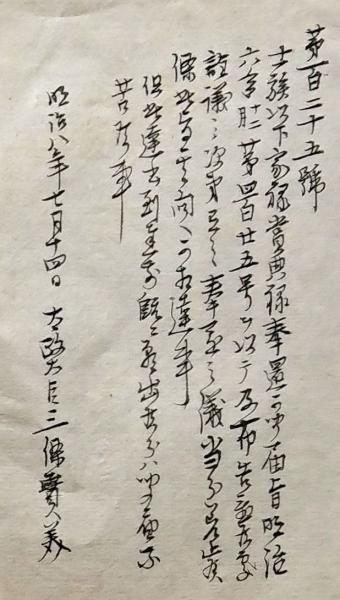 第百二十五號
士族以下家禄賞典禄奉還可聞届旨明治
六年十二第四百廿五号ヲ以テ及布告置候處
詮議之次第有之奉還之儀当分差止候
條此旨可相達事
但此達書到達前既ニ願出候分ハ聞届不
苦候事
明治八年七月十四日 太政大臣三條實美